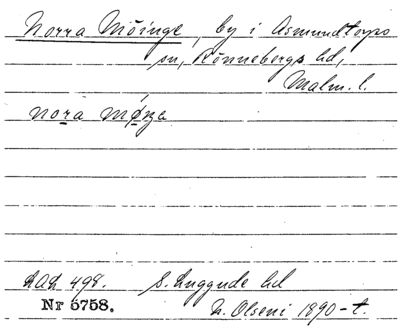 Norra Möinge, by i Asmundtorps
sn, Rönnebergs hd,
Malm. l.
nora møiza
LAL 498. S. Luggude hd
Nr 5758. N. Olseni 1890-t.